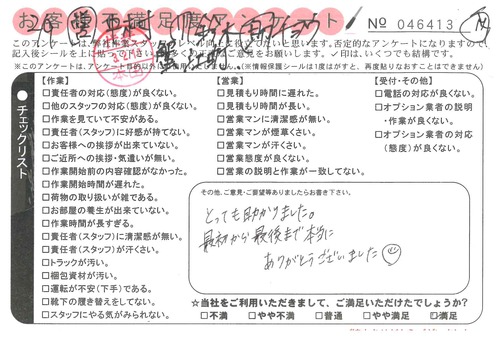 お客様不満足度アンケート
№ 046413
このアンケートは、弊社作業スタッフのレベル向上に役立てたいと思います。否定的なアンケートになりますので、
記入後シールを上に貼って下さい。多くのお客様の正直なご意見をお願いします。✓印は、いくつでも結構です。
※このアンケートは、アンケート目的以外には使用いたしません。（※情報保護シールは1度はがすと、再度貼りなおすことはできません）
チェックリスト
【作業】
□責任者の対応(態度)が良くない。
□他のスタッフの対応(態度)が良くない。
□作業を見ていて不安がある。
□責任者(スタッフ)に好感が持てない。
□お客様への挨拶が出来ていない。
□ご近所への挨拶・気遣いが無い。
□作業開始前の内容確認がなかった。
□作業開始時間が遅れた。
□荷物の取り扱いが雑である。
□お部屋の養生が出来ていない。
□作業時間が長すぎる。
□責任者(スタッフ)に清潔感が無い。
□責任者(スタッフ)が汗くさい。
□トラックが汚い。
□梱包資材が汚い。
□運転が不安(下手)である。
□靴下の履き替えをしてない。
□スタッフにやる気がみられない。
【営業】
□見積もり時間に遅れた。
□見積もり時間が長い。
□営業マンに清潔感が無い。
□営業マンが煙草くさい。
□営業マンが汗くさい。
□営業態度が良くない。
□営業の説明と作業が一致してない。
【受付・その他】
□電話の対応が良くない。
□オプション業者の説明
・作業が良くない。
□オプション業者の対応
(態度)が良くない。
その他、ご意見・ご要望等ありましたらお書き下さい。
とっても助かりました。
最初から最後まで本当に
ありがとうございました
☆当社をご利用いただきまして、ご満足いただけたでしょうか?
□不満 □やや不満 □普通 □やや満足 ☑満足